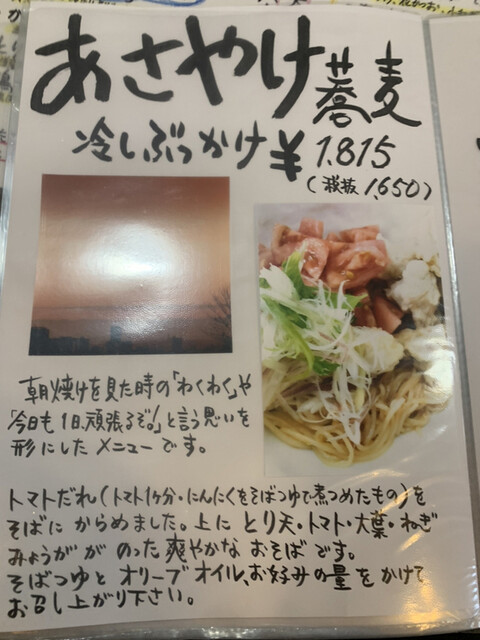 あさやけ蕎麦
冷しぶっかけ ¥1.815
(税抜 1,650)
朝焼けを見た時の「わくわく」や
「今日も1日、頑張るぞ。」と言う思いを
形にしたメニューです。
トマトだれ(トマト1ヶ分・にんにくをそばつゆで煮つめたもの)を
そばに からめました。上に とり天・トマト・大葉・ねぎ
みょうがが のった 爽やかな おそばです。
そばつゆと オリーブオイル、お好みの量をかけて
お召し上がり下さい。